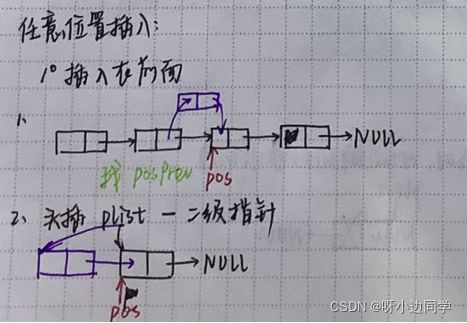 任意位置插入:
1° 插入在前面
1、
→NULL
找 posPrev pos
2、头插 plist — 二级指针
→NULL
pos
CSDN @呀小边同学